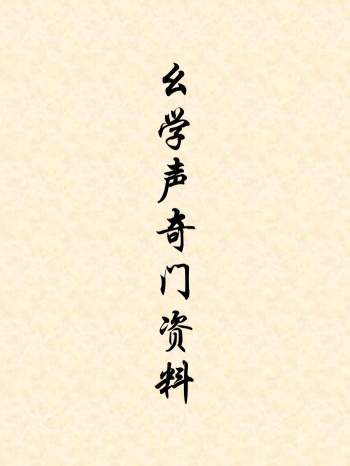 幺学声奇门资料